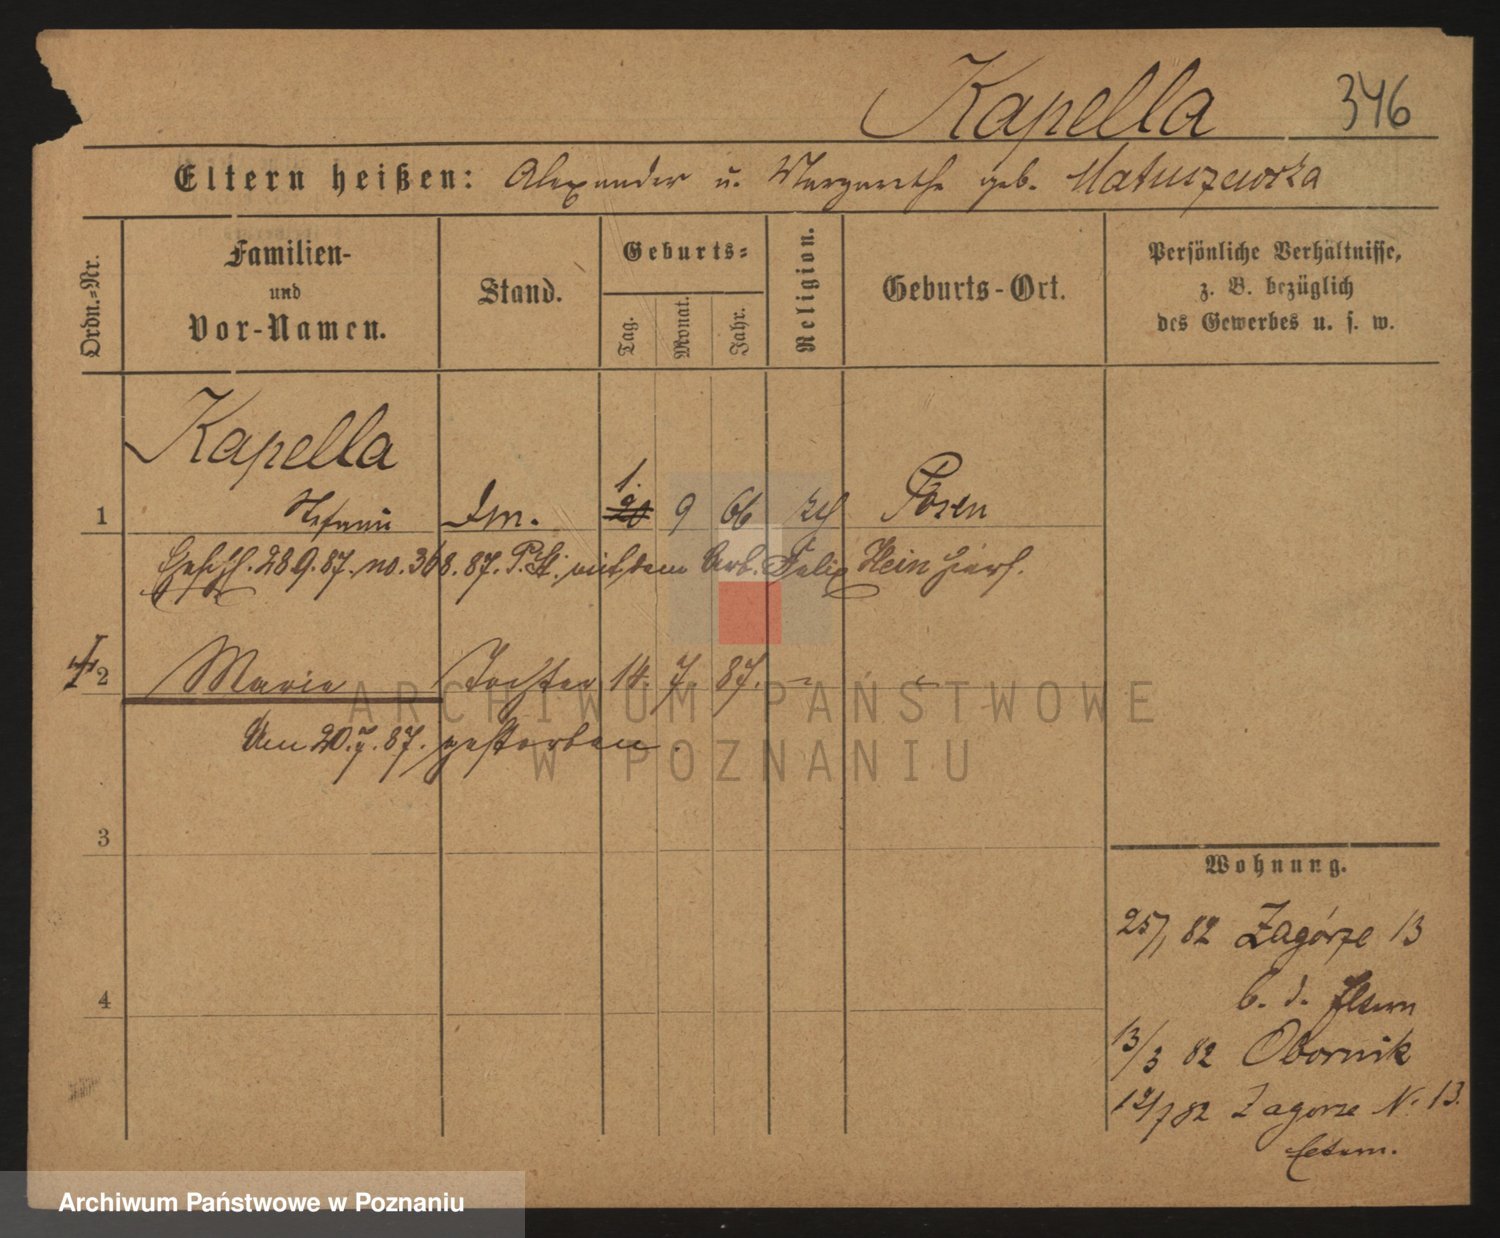 Kapella 346
Eltern heißen: Alexander u. Margarethe geb. Matuszewska
Ordn.-Nr.
Familien- und Vor-Namen.
Stand.
Geburts-
Tag.
Monat.
Jahr.
Religion.
Geburts-Ort.
Persönliche Verhältnisse,
z. B. bezüglich
des Gewerbes u. s. w.
Kapella
1 Stefanie 1. 20 9 66 Posen
28.9.87. no. 368.87. P. St. mit dem Arb. Felix Klein hier
2 Marie Tochter 14. 7. 87.
Am 20.7.87. gestorben.
3
4
Wohnung.
25/1 82 Zagórze 13
b. d. Eltern
13/3 82 Obornik
12/7 82 Zagorze N. 13.
Eltern.
ARCHIWUM PAŃSTWOWE
W POZNANIU
Archiwum Państwowe w Poznaniu